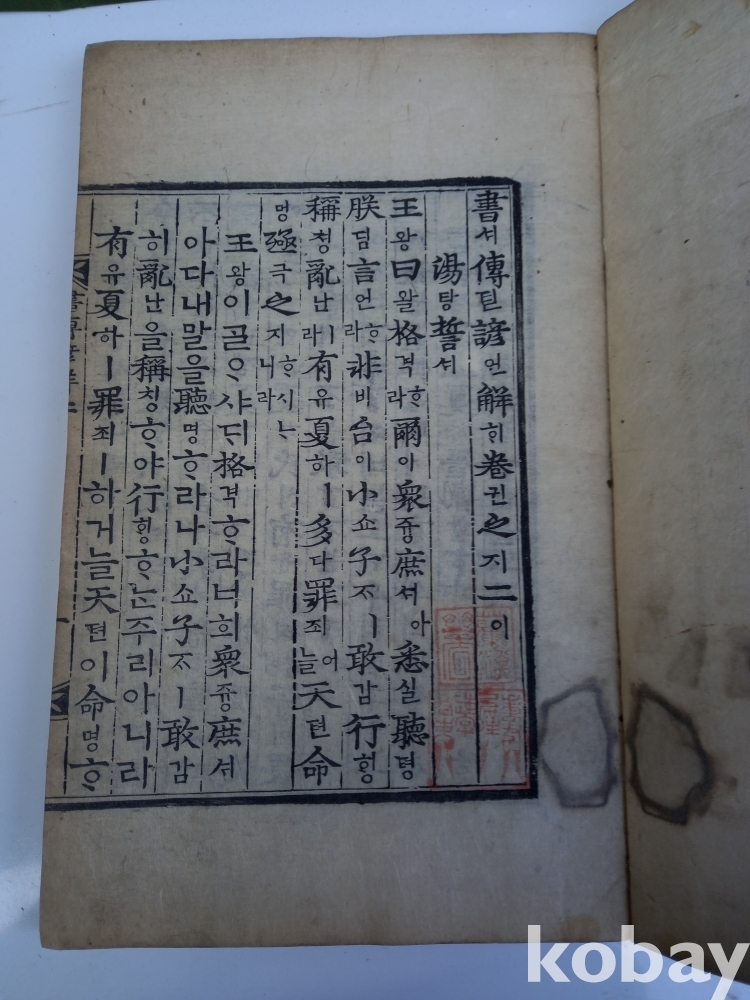 書셔傳뎐諺언解ᄒᆡ卷권之지二이
湯탕誓셔
王왕曰왈格격ᄒᆞ라爾이衆즁庶셔아悉실聽텽
朕딤言언ᄒᆞ라非비台이小쇼子ᄌᆞㅣ敢감行ᄒᆡᆼ
稱칭亂난ㅣ라有유夏하ㅣ多다罪죄어늘天텬命
명殛극之지ᄒᆞ시ᄂᆞ니라
王왕이ᄀᆞᆯᄋᆞ샤ᄃᆡ格격ᄒᆞ라너희衆즁庶셔
아다내말을聽텽ᄒᆞ라나小쇼子ᄌᆞㅣ敢감
히亂난을稱칭ᄒᆞ야行ᄒᆡᆼᄒᆞᄂᆞᆫ주리아니라
有유夏하ㅣ罪죄ㅣ하거늘天텬이命명ᄒᆞ
書傳諺解二
kobay